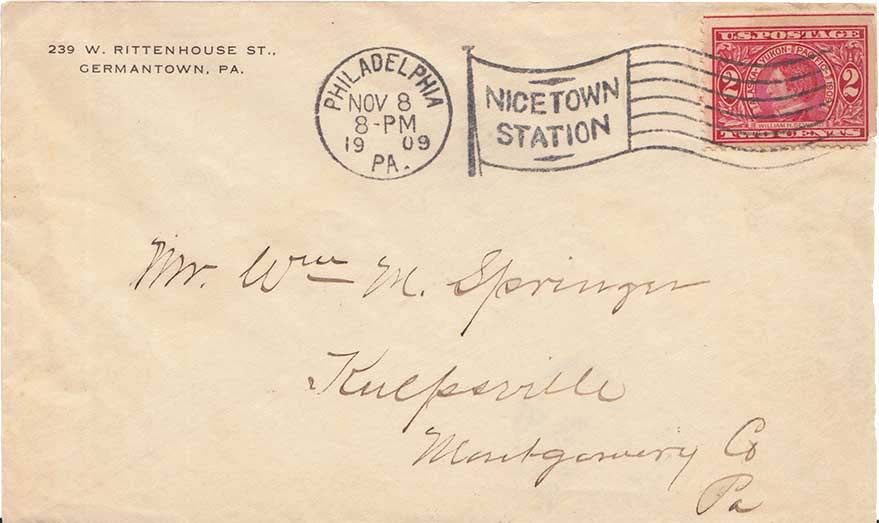 239 W. RITTENHOUSE ST.,
GERMANTOWN, PA.
PHILADELPHIA
NOV 8
8-PM
1909
PA.
NICETOWN
STATION
U.S. POSTAGE
ALASKA-YUKON-PACIFIC 1909
2 2
TWO CENTS
Mr. Wm M. Springer
Kulpsville
Montgomery Co
Pa